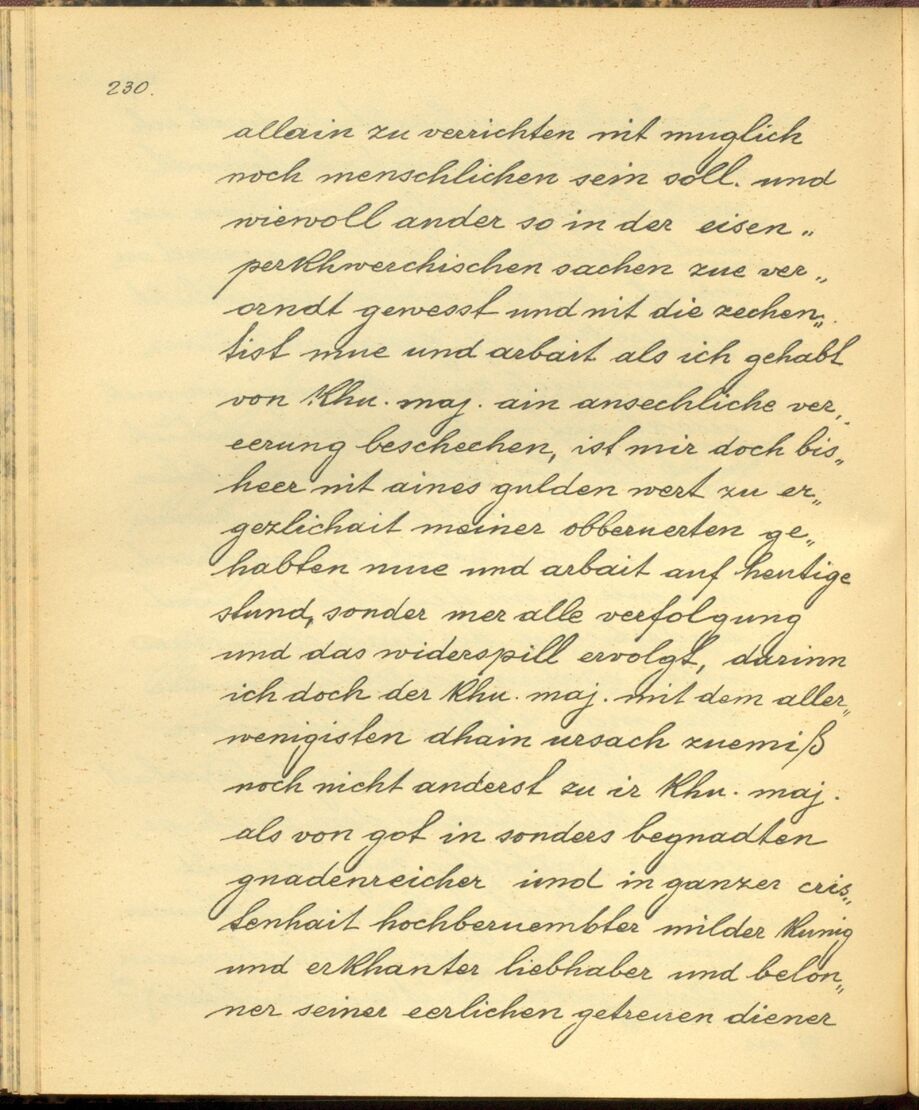 230.
allain zu verrichten nit muglich
noch menschlichen sein soll. und
wiewoll ander so in der eisen„
perkhwerchischen sachen zue ver„
orndt gewesst und nit die zechen„
tist mue und arbait als ich gehabt
von Khu. maj. ain ansechliche ver„
eerung beschechen, ist mir doch bis„
heer nit aines gulden wert zu er„
gezlichait meiner obberuerten ge„
habten mue und arbait auf heutige
stund, sonder mer alle verfolgung
und das widerspill ervolgt, darinn
ich doch der Khu. maj. mit dem aller„
wenigisten dhain ursach zuemiß
noch nicht anderst zu ir Khu. maj.
als von got in sonders begnadten
gnadenreicher und in ganzer cris„
tenhait hochberuembter milder Kunig
und erkhanter liebhaber und belon„
ner seiner eerlichen getreuen diener